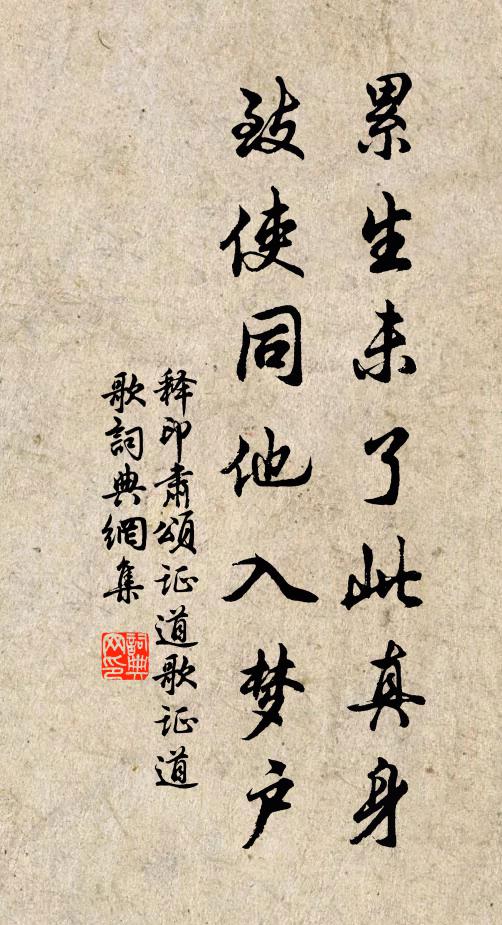 累生未了此真身
致使同他入梦户
释印肃颂证道歌证道
歌詞典網集
詞典
网印